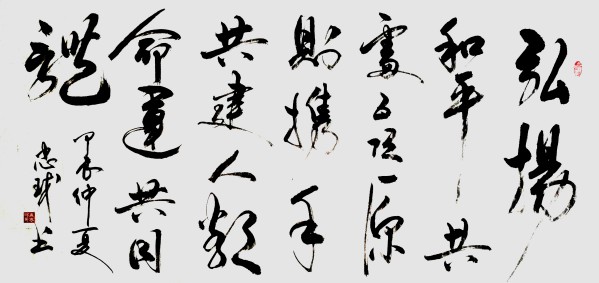 弘揚
和平共
處五項原
則携手
共建人類
命運共同
體
甲辰仲夏
忠书